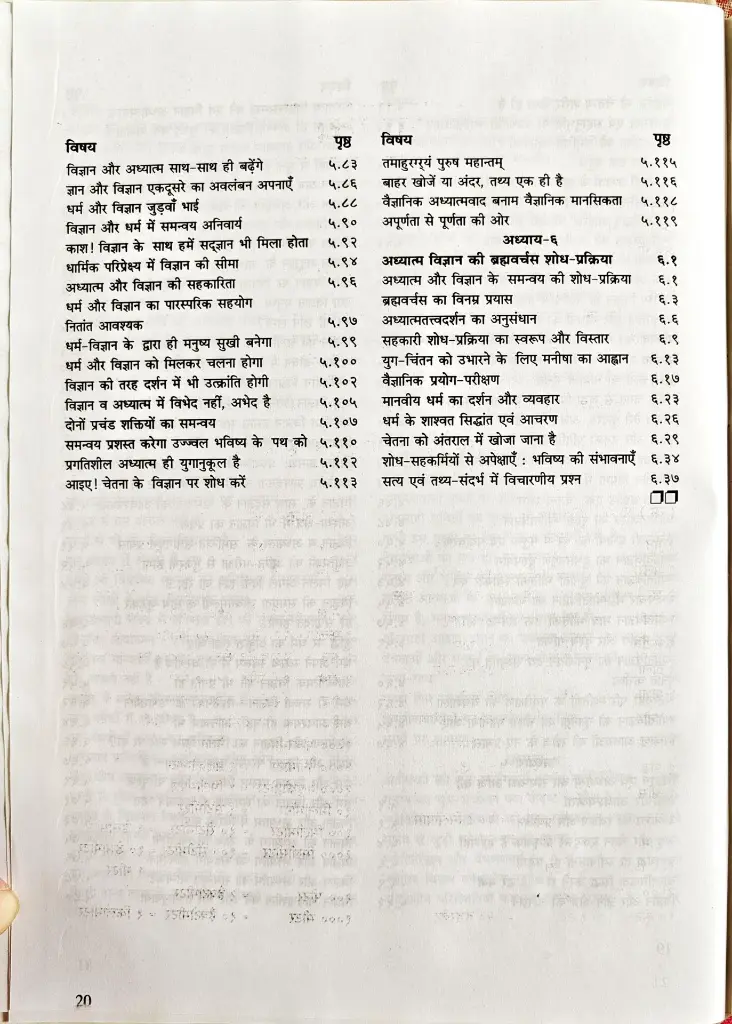 विषय पृष्ठ
विज्ञान और अध्यात्म साथ-साथ ही बढ़ेंगे ५.८३
ज्ञान और विज्ञान एकदूसरे का अवलंबन अपनाएँ ५.८६
धर्म और विज्ञान जुड़वाँ भाई ५.८८
विज्ञान और धर्म में समन्वय अनिवार्य ५.९०
काश! विज्ञान के साथ हमें सद्ज्ञान भी मिला होता ५.९२
धार्मिक परिप्रेक्ष्य में विज्ञान की सीमा ५.९४
अध्यात्म और विज्ञान की सहकारिता ५.९६
धर्म और विज्ञान का पारस्परिक सहयोग
नितांत आवश्यक ५.९७
धर्म-विज्ञान के द्वारा ही मनुष्य सुखी बनेगा ५.९९
धर्म और विज्ञान को मिलकर चलना होगा ५.१००
विज्ञान की तरह दर्शन में भी उत्क्रांति होगी ५.१०२
विज्ञान व अध्यात्म में विभेद नहीं, अभेद है ५.१०५
दोनों प्रचंड शक्तियों का समन्वय ५.१०७
समन्वय प्रशस्त करेगा उज्ज्वल भविष्य के पथ को ५.११०
प्रगतिशील अध्यात्म ही युगानुकूल है ५.११२
आइए! चेतना के विज्ञान पर शोध करें ५.११३
विषय पृष्ठ
तमाहुरग्र्यं पुरुष महान्तम् ५.११५
बाहर खोजें या अंदर, तथ्य एक ही है ५.११६
वैज्ञानिक अध्यात्मवाद बनाम वैज्ञानिक मानसिकता ५.११८
अपूर्णता से पूर्णता की ओर ५.११९
अध्याय-६
अध्यात्म विज्ञान की ब्रह्मवर्चस शोध-प्रक्रिया ६.१
अध्यात्म और विज्ञान के समन्वय की शोध-प्रक्रिया ६.१
ब्रह्मवर्चस का विनम्र प्रयास ६.३
अध्यात्मतत्त्वदर्शन का अनुसंधान ६.६
सहकारी शोध-प्रक्रिया का स्वरूप और विस्तार ६.९
युग-चिंतन को उभारने के लिए मनीषा का आह्वान ६.१३
वैज्ञानिक प्रयोग-परीक्षण ६.१७
मानवीय धर्म का दर्शन और व्यवहार ६.२३
धर्म के शाश्वत सिद्धांत एवं आचरण ६.२६
चेतना को अंतराल में खोजा जाना है ६.२९
शोध-सहकर्मियों से अपेक्षाएँ : भविष्य की संभावनाएँ ६.३४
सत्य एवं तथ्य-संदर्भ में विचारणीय प्रश्न ६.३७
20